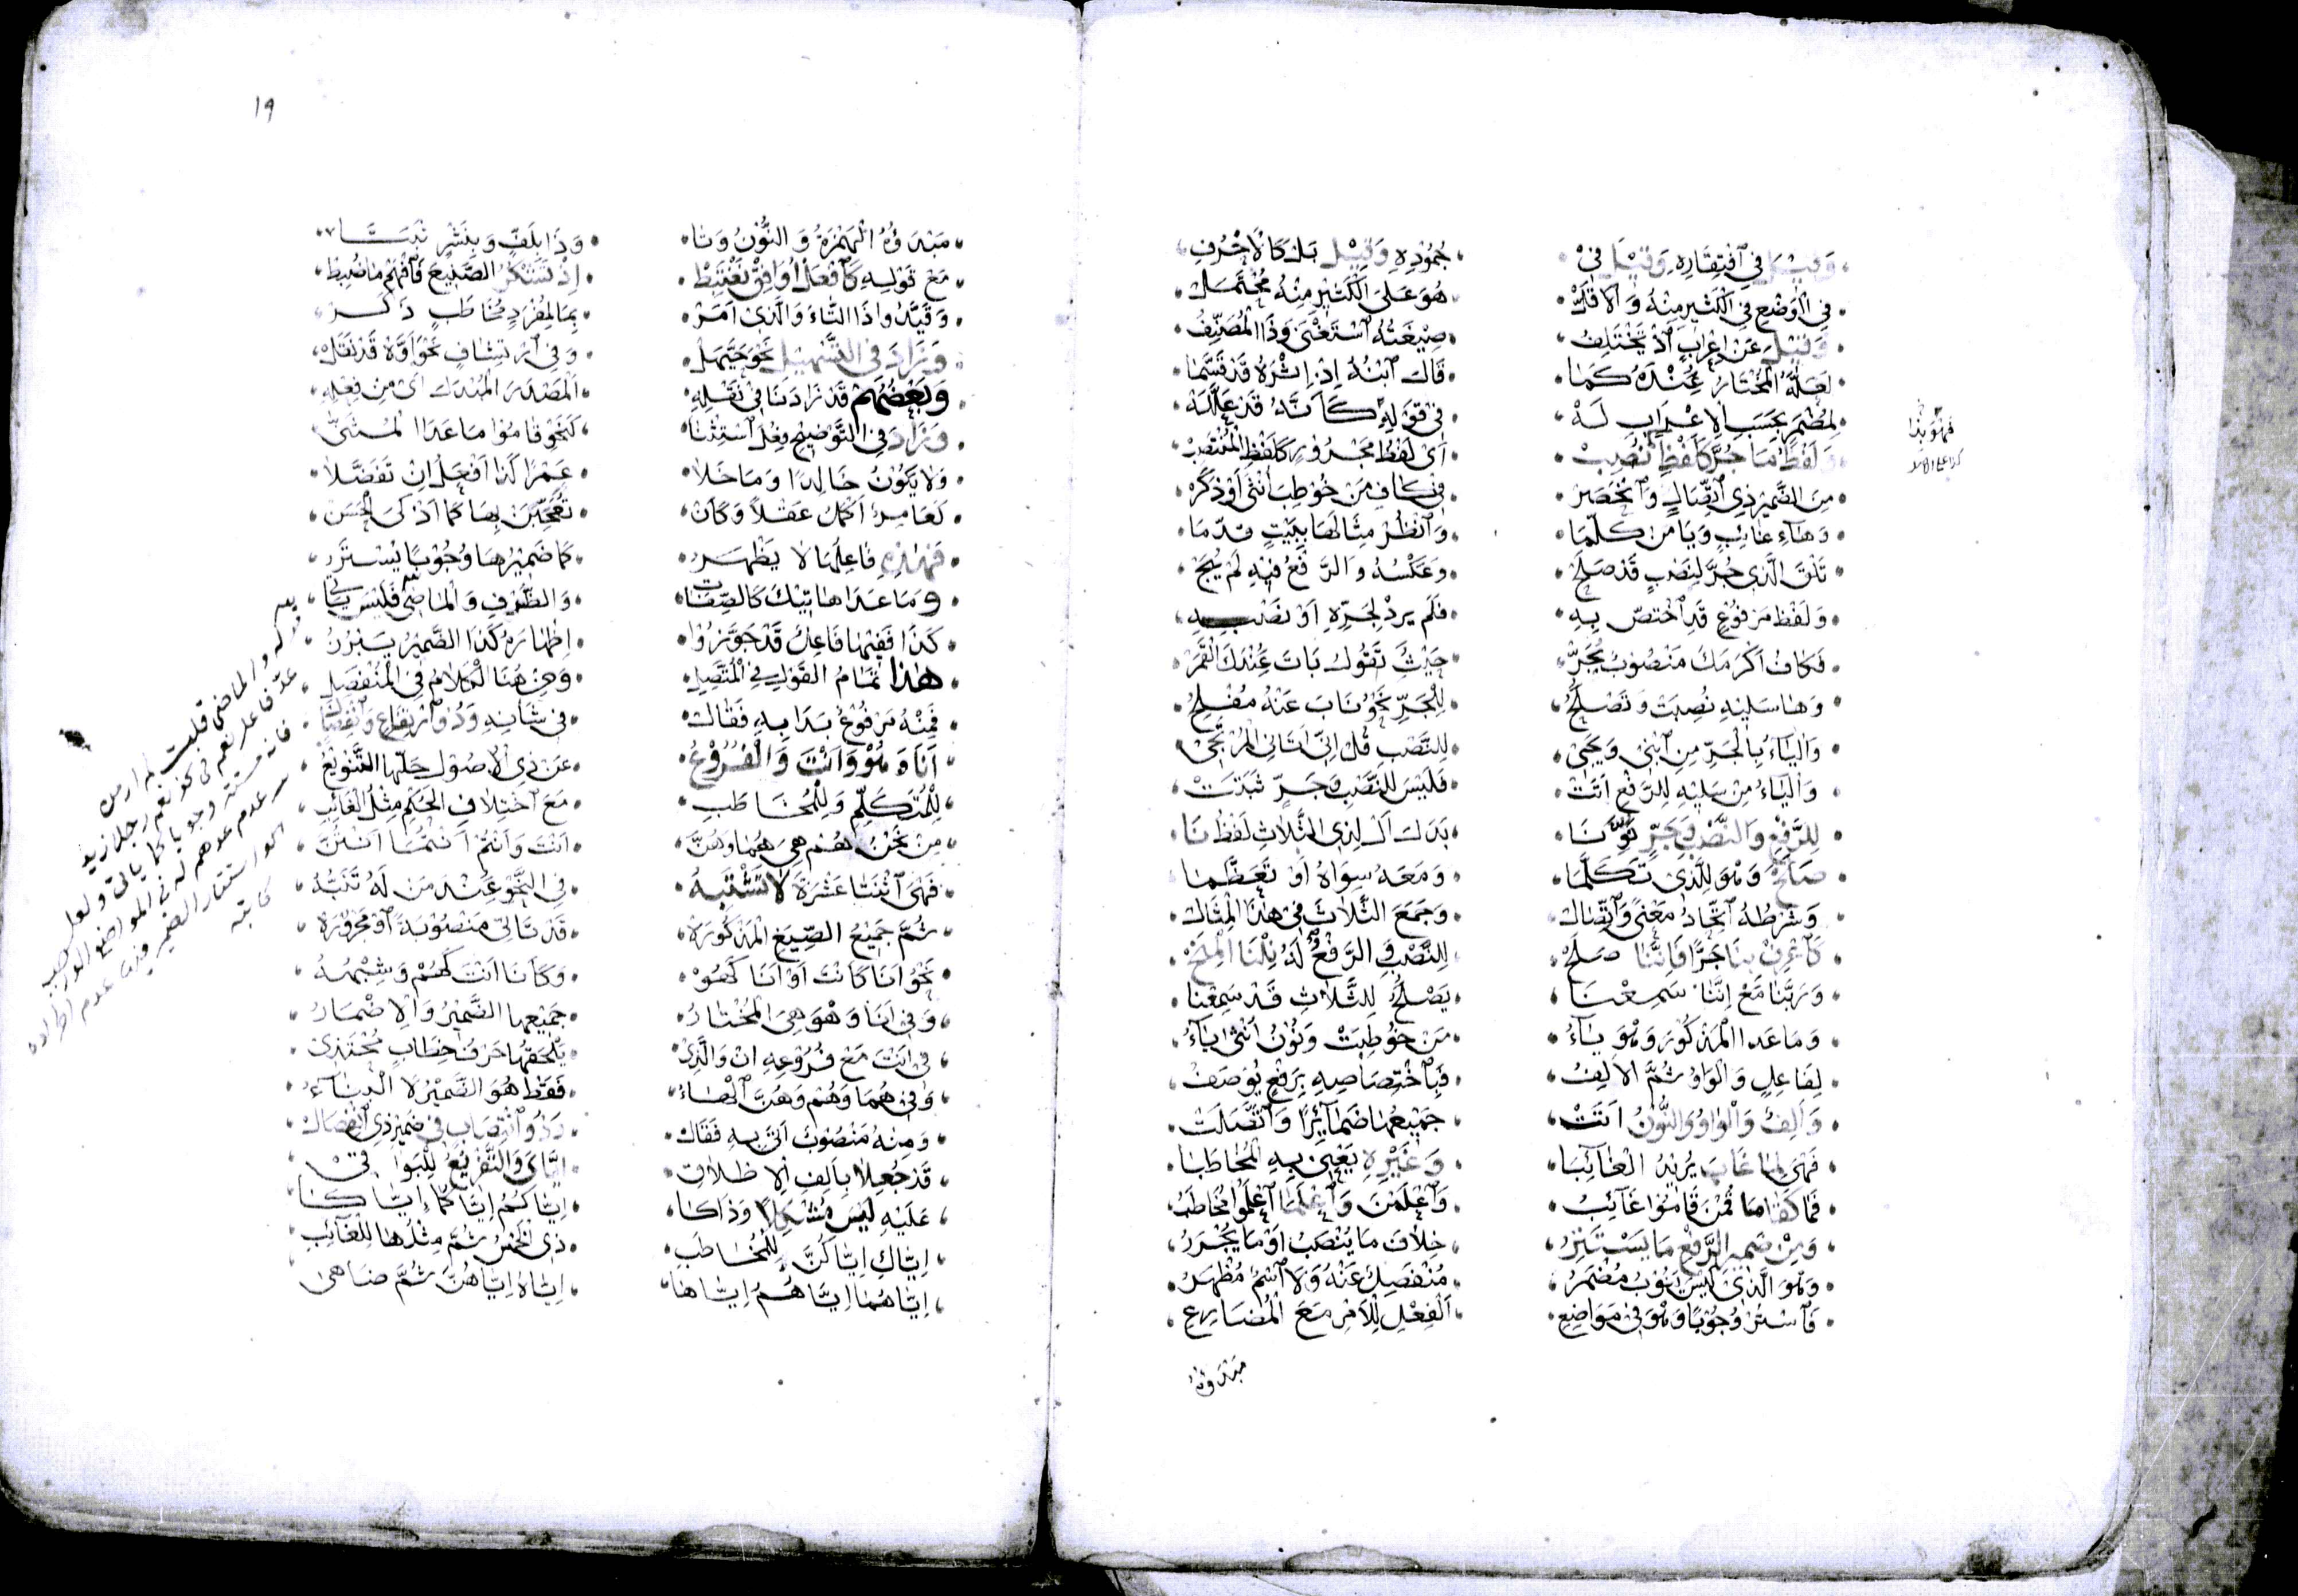 وَقِيْلَ فِي ٱفْتِقَارِهِ وَقِيْلَ فِيْ . جُمُوْدِهِ وَقِيْلَ بَلْ كَالْأَحْرُفِ
فِي الْوَضْعِ فِي الْكَثِيْرِ مِنْهُ وَالْأَقَلّْ . هُوَ عَلَى الْكَثِيْرِ مِنْهُ مُحْتَمَلْ
وَقِيْلَ عَنْ إِعْرَابٍ ٱذْ يَخْتَلِفُ . صِيْغَتُهُ ٱسْتَغْنَى وَذَا الْمُصَنِّفُ
لَعَلَّهُ الْمُخْتَارُ عِنْدَهُ كَمَا . قَالَ ٱبْنُهُ إِذْ إِثْرَهُ قَدْ قَسَّمَا
لِمُضْمَرٍ بِحَسَبِ الْإِعْرَابِ لَهْ . فِيْ قَوْلِهِ كَأَنَّهُ قَدْ عَلَّلَهْ
وَلَفْظُ مَا جُرَّ كَلَفْظِ نُصِبْ . أَيْ لَفْظُ مَجْرُوْرٍ كَلَفْظِ الْمُنْتَصِبْ
مِنَ الضَّمِيْرِ ذِي ٱتِّصَالٍ وَٱنْحَصَرْ . فِيْ كَافِ مَنْ خُوْطِبَ أُنْثَى أَوْ ذَكَرْ
وَهَاءِ غَائِبٍ وَيَا مَنْ كَلَّمَا . وَٱنْظُرْ مِثَالَهَا بِبَيْتٍ قَدَّمَا
تَلْقَ الَّذِي جُرَّ لِنَصْبٍ قَدْ صَلَحْ . وَعَكْسُهُ وَالرَّفْعُ فِيْهِ لَمْ يُبَحْ
وَلَفْظُ مَرْفُوْعٍ قَدِ ٱخْتَصَّ بِهِ . فَلَمْ يَرِدْ لِجَرِّهِ أَوْ نَصْبِهِ
فَكَافُ أَكْرَمَكَ مَنْصُوْبٌ يُجَرّْ . حَيْثُ تَقُوْلُ بَاتَ عِنْدَكَ الْقَمَرْ
وَهَا سَلِيْهِ نُصِبَتْ وَتَصْلُحُ . لِلْجَرِّ نَحْوُ نَابَ عَنْهُ مُفْلِحُ
وَالْيَاءُ بِالْجَرِّ مِنِ ٱبْنِيْ وَيَجِيْ . لِلنَّصْبِ قُلْ إِنِّيْ أَتَانِي الْمُرْتَجِيْ
وَالْيَاءُ مِنْ سَلِيْهِ لِلرَّفْعِ أَتَتْ . فَلَيْسَ لِلنَّصْبِ وَجَرٍّ ثَبَتَتْ
لِلرَّفْعِ وَالنَّصْبِ وَجَرٍّ نَا . بَدَلَ الْ لِذِي الثَّلَاثِ لَفْظُ نَا
صَلَحْ وَهْوَ لِلَّذِيْ تَكَلَّمَا . وَمَعَهُ سِوَاهُ أَوْ تَعَظَّمَا
وَشَرْطُهُ ٱتِّحَادُ مَعْنًى وَٱتِّصَالْ . وَجَمَعَ الثَّلَاثَ فِيْ هٰذَا الْمِثَالْ
كَٱعْرِفْ بِنَا جَرًّا فَإِنَّنَا صَلَحْ . لِلنَّصْبِ وَالرَّفْعُ لَهُ نِلْنَا الْمِنَحْ
وَرَبَّنَا مَعْ إِنَّنَا سَمِعْنَا . يَصْلُحُ لِلثَّلَاثِ قَدْ سَمِعْنَا
وَمَا عَدَا الْمَذْكُوْرَ وَهْوَ يَاءُ . مَنْ خُوْطِبَتْ وَنُوْنُ أُنْثَى يَاءُ
لِفَاعِلٍ وَالْوَاوُ ثُمَّ الْأَلِفُ . فَبِٱخْتِصَاصِهِ بِرَفْعٍ يُوْصَفُ
وَأَلِفٌ وَالْوَاوُ وَالنُّوْنُ أَتَتْ . جَمِيْعُهَا ضَمَائِرًا وَٱتَّصَلَتْ
فَهْيَ لِمَا غَابَ يُرِيْدُ الْغَائِبَا . وَغَيْرِهِ يَعْنِيْ بِهِ الْمُخَاطَبَا
قُمْنَ قَامُوْا غَائِبُ . وَٱعْلَمْنَ وَٱعْلَمَا ٱعْلَمُوْا مُخَاطَبُ
وَمِنْ ضَمِيْرِ الرَّفْعِ مَا يَسْتَتِرُ . خِلَافَ مَا يُنْصَبُ أَوْ مَا يُجْرَرُ
وَهْوَ الَّذِيْ لَيْسَ يَنُوْبُ مُضْمَرُ . مُنْفَصِلٌ عَنْهُ وَلَا ٱسْمٌ مُظْهَرُ
فَٱسْتُرْ وُجُوْبًا وَهْوَ فِيْ مَوَاضِعِ . الْفِعْلِ لِلْأَمْرِ مَعَ الْمُضَارِعِ
مبدوءة
فهو بذا
١٩
مَبْدَؤُهُ الْهَمْزَةُ وَالنُّوْنُ وَتَا . وَذَا بِلَفٍّ وَبِنَشْرٍ ثَبَتَا
مَعْ قَوْلِهِ كَٱفْعَلْ أُوَافِقْ نَغْتَبِطْ . إِذْ تَشْكُرُ الصَّنِيْعَ فَٱفْهَمْ مَا ضُبِطْ
وَقَيَّدُوا ذَا التَّاءَ وَالَّذِيْ أَمَرْ . بِمَا لِمُفْرَدٍ مُخَاطَبٍ ذَكَرْ
وَزَادَ فِي التَّسْهِيْلِ نَحْوَ حَيَّهَلْ . وَفِي ٱرْتِشَافٍ نَحْوَ أَوَّهْ قَدْ نَقَلْ
وَبَعْضُهُمْ قَدْ زَادَنَا فِيْ نَقْلِهِ . الْمَصْدَرَ الْمُبْدَلَ أَيْ مِنْ فِعْلِهِ
وَزَادَ فِي التَّوْضِيْحِ فِعْلَ ٱسْتِثْنَا . كَنَحْوِ قَامُوْا مَا عَدَا الْمُثَنَّى
وَلَا يَكُوْنُ خَالِدًا وَمَا خَلَا . عَمْرًا كَذَا أَفْعَلُ إِنْ تَفَضَّلَا
لَعَامِرٌ أَكْمَلُ عَقْلًا وَكَأَنْ . تَعَجُّبِيْنَ بِهَا كَمَا أَذْكَى الْحَسَنْ
فَهٰذِهِ فَاعِلُهَا لَا يَظْهَرُ . كَمَا ضَمِيْرُهَا وُجُوْبًا يُسْتَرُ
وَمَا عَدَا هَاتِيْكَ كَالصِّفَاتِ . وَالظَّرْفِ وَالْمَاضِيْ فَلَيْسَ
كَذَا فَفِيْهَا فَاعِلٌ قَدْ جَوَّزُوْا . إِظْهَارَهُ كَذَا الضَّمِيْرُ يَبْرُزُ
هٰذَا تَمَامُ الْقَوْلِ فِي الْمُتَّصِلِ . وَمِنْ هُنَا الْكَلَامُ فِي الْمُنْفَصِلِ
فَمِنْهُ مَرْفُوْعٌ بَدَا بِهِ فَقَالْ . فِيْ شَأْنِهِ وَذُو ٱرْتِفَاعٍ وَٱنْفِصَالْ
أَنَا وَهُوْ وَأَنْتَ وَالْفُرُوْعُ . عَنْ ذِي الْأُصُوْلِ حَلَّهَا التَّنْوِيْعُ
لِلْمُتَكَلِّمِ وَلِلْمُخَاطَبِ . مَعَ ٱخْتِلَافِ الْحُكْمِ مِثْلُ الْغَائِبِ
مِنْ نَحْنُ هُمْ هِيَ هُمَا وَهُنَّ . أَنْتِ وَأَنْتُمْ أَنْتُمَا أَنْتُنَّ
فَهْيَ ٱثْنَتَا عَشْرَةَ لَا تَشْتَبِهُ . فِي النَّحْوِ عِنْدَ مَنْ لَهُ تَنَبُّهُ
ثُمَّ جَمِيْعُ الصِّيَغِ الْمَذْكُوْرَهْ . قَدْ تَأْتِيْ مَنْصُوْبَةً ٱوْ مَجْرُوْرَهْ
نَحْوُ أَنَا كَأَنْتَ أَوْ أَنَا كَهُوْ . وَكَأَنَا أَنْتَ كَهُمْ وَشِبْهُهُ
وَفِيْ أَنَا وَهْوَ هِيَ الْمُخْتَارُ . جَمِيْعُهَا الضَّمِيْرُ وَالْإِضْمَارُ
فِيْ أَنْتَ مَعْ فُرُوْعِهِ أَنْ وَالَّذِيْ . يَلْحَقُهَا حَرْفُ خِطَابٍ مُحْتَذِيْ
وَفِيْ هُمَا وَهُمْ وَهُنَّ الْهَاءُ . فَقَطْ هُوَ الضَّمِيْرُ لَا الْبِنَاءُ
وَمِنْهُ مَنْصُوْبٌ أَتَى بِهِ فَقَالْ . وَذُو ٱنْتِصَابٍ فِيْ ضَمِيْرٍ ذِي ٱنْفِصَالْ
قَدْ جُعِلَا بِأَلِفِ الْإِطْلَاقِ . إِيَّايَ وَالتَّفْرِيْعُ لِلْبَوَاقِيْ
عَلَيْهِ لَيْسَ مُشْكِلًا وَذَاكَا . إِيَّاكُمُ إِيَّاكُمَا إِيَّاكَا
إِيَّاكِ إِيَّاكُنَّ لِلْمُخَاطَبِ . ذِي الْخَمْسُ ثُمَّ مِثْلُهَا لِلْغَائِبِ
إِيَّاهُمَا إِيَّاهُمُ إِيَّاهَا . إِيَّاهُ إِيَّاهُنَّ ثُمَّ ضَاهَى
والماضي قلت
عد فاعل نعم في نحو نعم رجلا زيد
فانه مستتر وجوبا كما ياتي ولعل
عدم عدهم له في المواضع
استتار الضمير